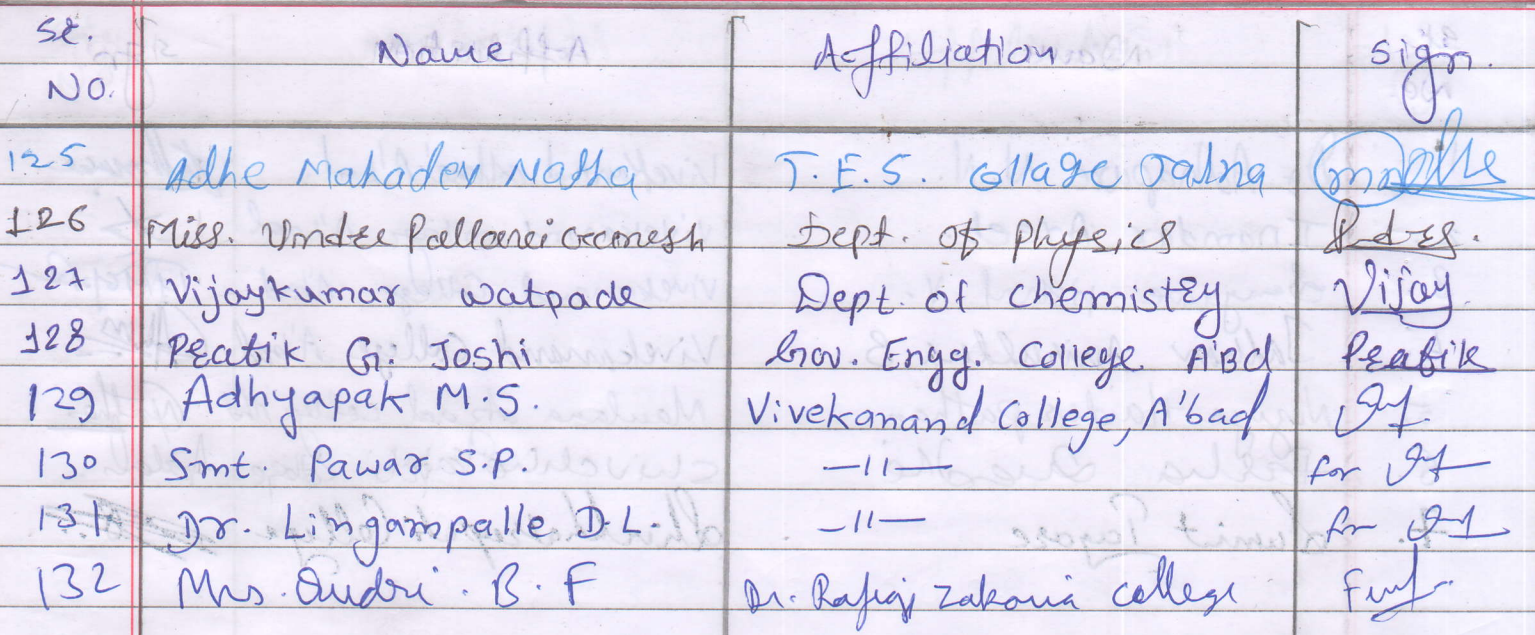 Sr. No. Name Affiliation Sign.
125 Adhe Mahadev Natha T.E.S. College Jalna
126 Miss. Undre Pallavi Dept. of Physics
127 Vijaykumar Watpade Dept. of Chemistry Vijay
128 Pratik G. Joshi Gov. Engg. College A'Bd Pratik
129 Adhyapak M.S. Vivekanand College, A'bad
130 Smt. Pawar S.P. —11— for
131 Dr. Lingampalle D.L. —11— for
132 Mrs. B. F Dr. Rafiq Zakaria College